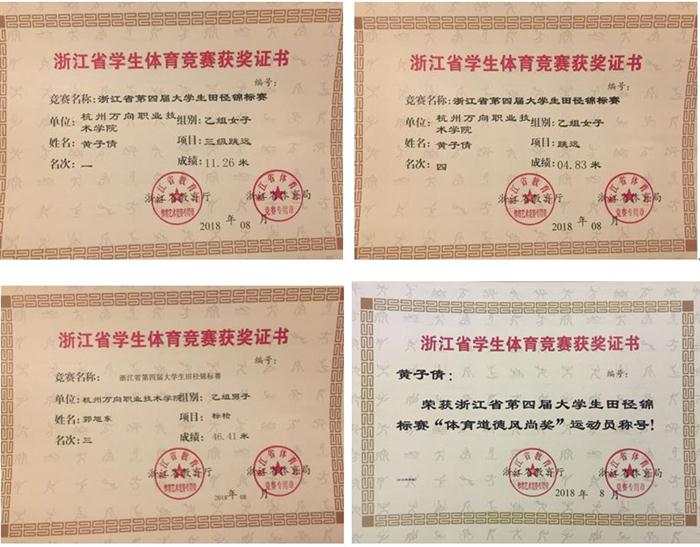 浙江省学生体育竞赛获奖证书
编号:
竞赛名称:浙江省第四届大学生田径锦标赛
单位:杭州万向职业技术学院 组别:乙组女子
姓名:黄子倩 项目:三级跳远
名次:一 成绩:11.26 米
浙江省教育厅 浙江省体育局
体育艺术竞赛专用章 竞赛专用章
2018 年 08 月
浙江省学生体育竞赛获奖证书
编号:
竞赛名称:浙江省第四届大学生田径锦标赛
单位:杭州万向职业技术学院 组别:乙组女子
姓名:黄子倩 项目:跳远
名次:四 成绩:04.83 米
浙江省教育厅 浙江省体育局
竞赛专用章
2018 年 08 月
浙江省学生体育竞赛获奖证书
编号:
竞赛名称: 浙江省第四届大学生田径锦标赛
单位:杭州万向职业技术学院 组别:乙组男子
姓名:郭旭东 项目:标枪
名次:三 成绩:46.41 米
浙江省教育厅 浙江省体育局
竞赛专用章
2018 年 08 月
浙江省学生体育竞赛获奖证书
黄子倩: 编号:
荣获浙江省第四届大学生田径锦
标赛“体育道德风尚奖”运动员称号!
浙江省教育厅 浙江省体育局
竞赛专用章
2018 年 8 月